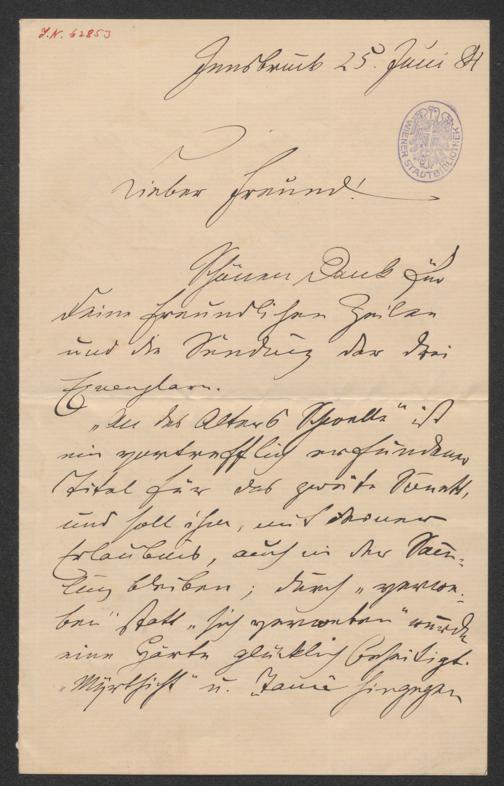 J.N. 62853
Innsbruck 25. Juni 84
WIENER STADTBIBLIOTHEK
Lieber Freund!
Schönen Dank für
Deine freundlichen Zeilen
und die Sendung der drei
Exemplare.
„An des Alters Schwelle" ist
ein vortrefflich erfundener
Titel für das zweite Sonett,
und soll ihm, mit Deiner
Erlaubnis, auch in der Samm-
lung bleiben; durch „verwe-
ben" statt „sich verweben" wurde
eine Härte glücklich beseitigt.
u. hingegen